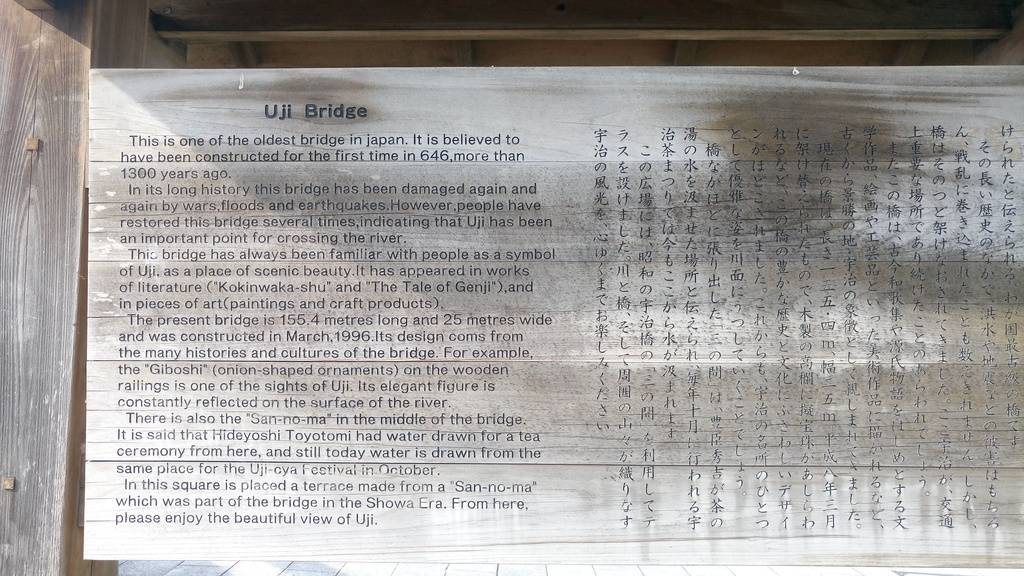 Uji Bridge
This is one of the oldest bridge in japan. It is believed to
have been constructed for the first time in 646,more than
1300 years ago.
In its long history this bridge has been damaged again and
again by wars,floods and earthquakes.However,people have
restored this bridge several times,indicating that Uji has been
an important point for crossing the river.
This bridge has always been familiar with people as a symbol
of Uji, as a place of scenic beauty.It has appeared in works
of literature ("Kokinwaka-shu" and "The Tale of Genji"),and
in pieces of art(paintings and craft products).
The present bridge is 155.4 metres long and 25 metres wide
and was constructed in March,1996.Its design coms from
the many histories and cultures of the bridge. For example,
the "Giboshi" (onion-shaped ornaments) on the wooden
railings is one of the sights of Uji. Its elegant figure is
constantly reflected on the surface of the river.
There is also the "San-no-ma" in the middle of the bridge.
It is said that Hideyoshi Toyotomi had water drawn for a tea
ceremony from here, and still today water is drawn from the
same place for the Uji-cya Festival in October.
In this square is placed a terrace made from a "San-no-ma"
which was part of the bridge in the Showa Era. From here,
please enjoy the beautiful view of Uji.
けられたと伝えられる、わが国最古級の橋です。
その長い歴史のなかで、洪水や地震などの被害はもちろ
ん、戦乱に巻き込まれたことも数しれません。しかし、
橋はそのつど架けなおされてきました。ここ宇治が、交通
上重要な場所であり続けたことのあらわれでしょう。
またこの橋は、古今和歌集や源氏物語をはじめとする文
学作品、絵画や工芸品といった美術作品に描かれるなど、
古くから景勝の地宇治の象徴として親しまれてきました。
現在の橋は、長さ一五五・四m、幅二五m、平成八年三月
に架け替えられたもので、木製の高欄に擬宝珠があしらわ
れるなど、この橋の豊かな歴史と文化にふさわしいデザイ
ンがほどこされました。これからも、宇治の名所のひとつ
として優雅な姿を川面にうつしていくことでしょう。
橋なかほどに張り出した「三の間」は、豊臣秀吉が茶の
湯の水を汲ませた場所と伝えられ、毎年十月に行われる宇
治茶まつりでは今もここから水が汲まれます。
この広場には、昭和の宇治橋の「三の間」を利用してテ
ラスを設けました。川と橋、そして周囲の山々が織りなす
宇治の風光を、心ゆくまでお楽しみください。